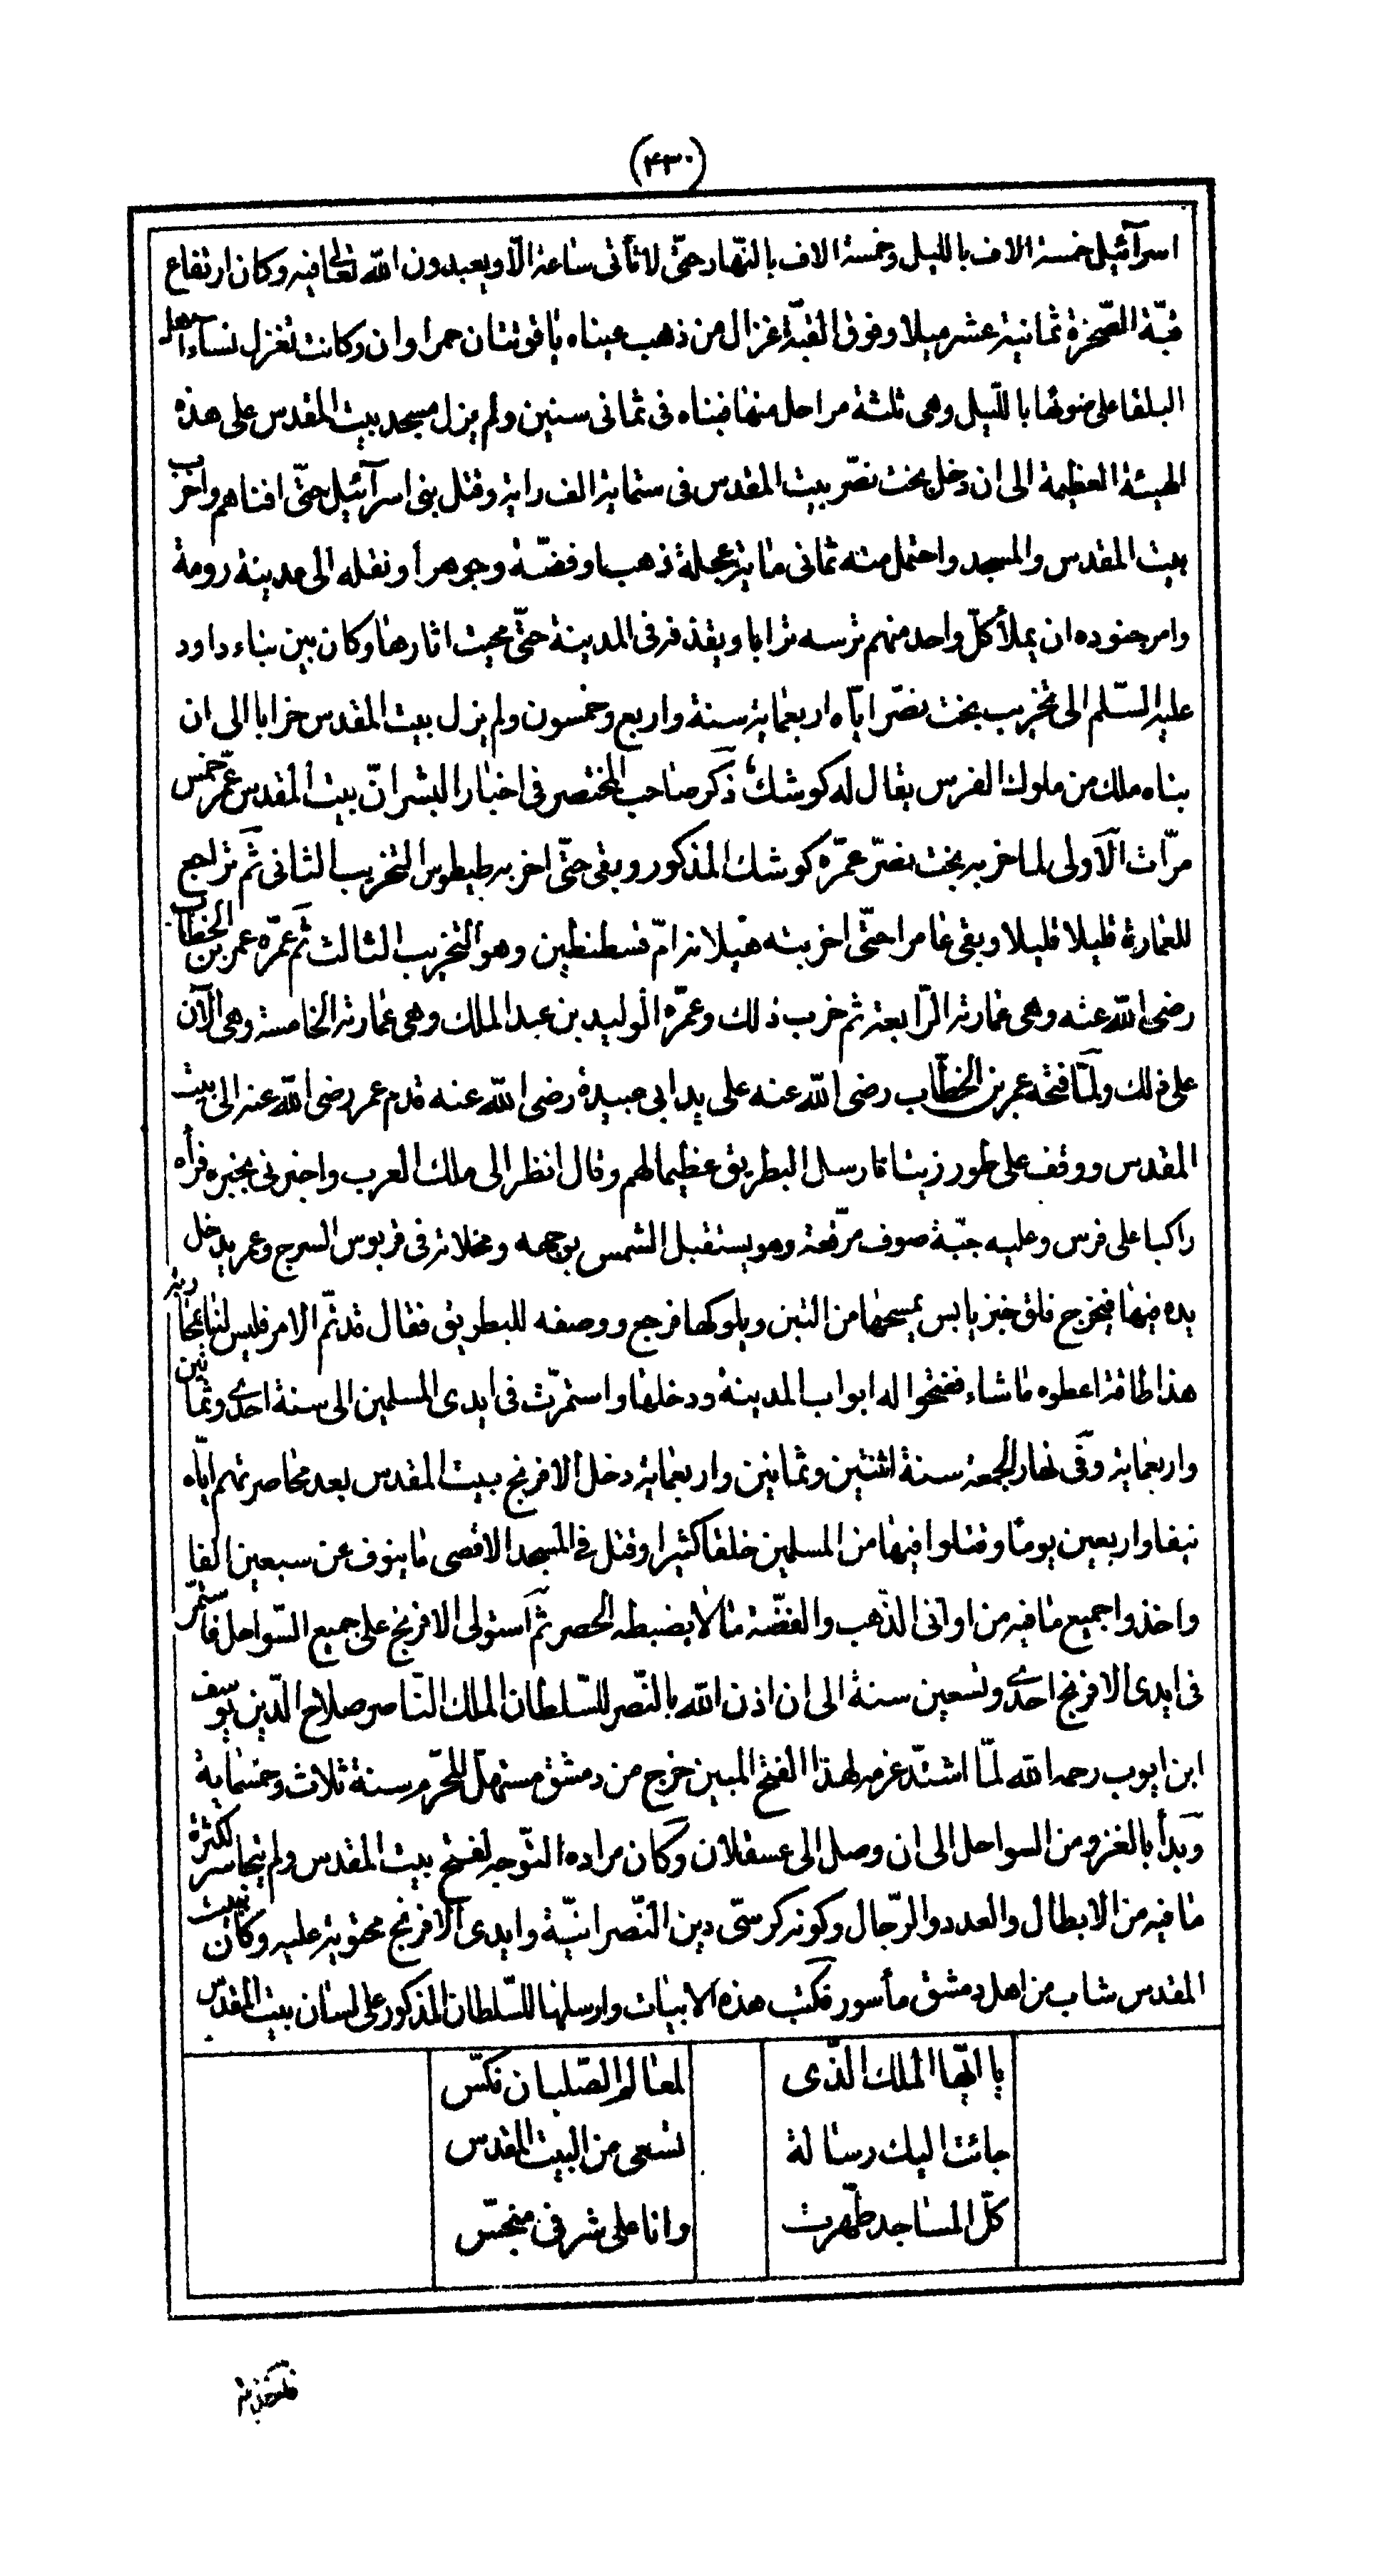 (٤٣٠)
اسرآئيل خمسة الاف بالليل وخمسة الاف بالنّهار حتّى لا تأتى ساعة الّا ويعبدون الله تعالى فيه وكان ارتفاع
قبّة الصّخرة ثمانية عشر ميلا وفوق القبّة غزال من ذهب عيناه ياقوتتان حمراوان وكانت تغزل نساء اهل
البلقا على ضوئها بالليل وهى ثلثة مراحل منها فبناه فى ثمانى سنين ولم يزل مسجد بيت المقدس على هذه
الهيئة العظيمة الى ان دخل بخت نصّر بيت المقدس فى ستماية الف راية وقتل بنى اسرآئيل حتّى افناهم واخرب
بيت المقدس والمسجد واحتمل منه ثمانى ماية عجلة ذهبا وفضّة وجوهرأ ونقله الى مدينة رومة
وامر جنوده ان يملأ كلّ واحد منهم ترسه ترابا ويقذفه فى المدينة حتّى محيت اثارها وكان بين بناء داود
عليه السّلم الى تخريب بخت نصّر ايّاه اربعماية سنة واربع وخمسون ولم يزل بيت المقدس خرابا الى ان
بناه ملك من ملوك الفرس يقال له كوشك ذكر صاحب المختصر فى اخبار البشر انّ بيت المقدس عمّر خمس
مرّات الاولى لما خربه بخت نصّر عمّره كوشك المذكور وبقى حتّى اخربه طيطوس التخريب الثانى ثمّ تراجع
للعمارة قليلا قليلا وبقى عامرا حتّى اخربته هيلانه امّ قسطنطين وهو التخريب الثالث ثمّ عمّره عمر بن الخطاب
رضى الله عنه وهى عمارته الرّابعة ثم خرب ذلك وعمّره الوليد بن عبد الملك وهى عمارته الخامسة وهى الآن
على ذلك ولمّا فتحه عمر بن الخطّاب رضى الله عنه على يد ابى عبيدة رضى الله عنه قدم عمر رضى الله عنه الى بيت
المقدس ووقف على طور زيتا فارسل البطريق عظيما لهم وقال انظر الى ملك العرب واخبرنى بخبره فرأه
راكبا على فرس وعليه جبّة صوف مرّقعة وهو يستقبل الشمس بوجهه ومخلاته فى قربوس السرج وعمر يدخل
يده فيها فيخرج فلق خبز يابس يمسحها من التبن ويلوكها فرجع ووصفه للبطريق فقال قد تمّ الامر فليس لنا بمحاربة
هذا طاقة اعطوه ما شاء ففتحوا له ابواب المدينة ودخلها واستمرّت فى ايدى المسلمين الى سنة احدى وثمانين
واربعماية وفى نهار الجمعة سنة اثنتين وثمانين واربعماية دخل الافرنج بيت المقدس بعد محاصرتهم ايّاه
نيفا واربعين يومًا وقتلوا فيها من المسلمين خلقا كثيرا وقتل فى المسجد الاقصى ما ينوف عن سبعين الفا
واخذوا جميع ما فيه من اوانى الذّهب والفضّة ما لا يضبطه الحصر ثمّ استولى الافرنج على جميع السّواحل فاستمرّ
فى ايدى الافرنج احدى وتسعين سنة الى ان اذن الله بالنّصر للسّلطان الملك النّاصر صلاح الدّين يوسف
ابن ايوب رحمه الله لمّا اشتدّ عزمه لهذا الفتح المبين خرج من دمشق مستهلّ المحرّم سنة ثلاث وخمسماية
وبدأ بالغزو من السواحل الى ان وصل الى عسقلان وكان مراده التّوجه لفتح بيت المقدس ولم يتجاسر لكثرة
ما فيه من الابطال والعدد والرّجال وكونه كرسّى دين النّصرانيّة وايدى الافرنج محتوية عليه وكان ببيت
المقدس شاب من اهل دمشق مأسور فكتب هذه الابيات وارسلها للسّلطان المذكور على لسان بيت المقدّس
يا ايّها الملك الذّى لمعالم الصّلبان نكّس
جائت اليك رسالة تسعى من البيت المقدس
كلّ المساجد طهّرت وانا على شرفى منجّس